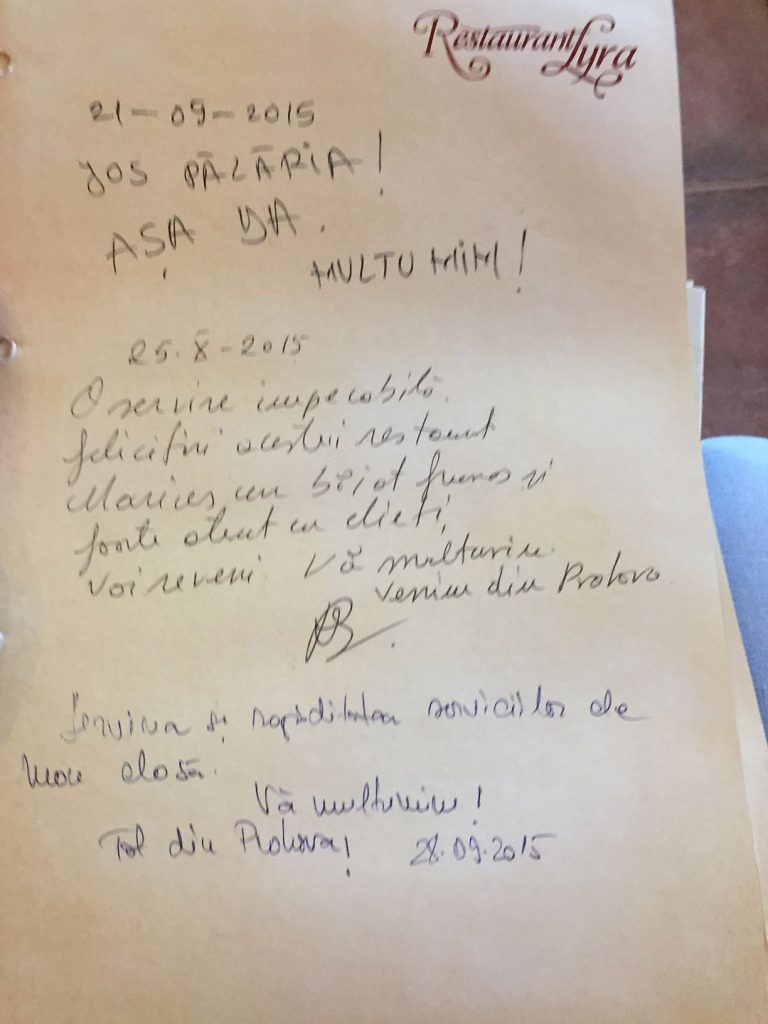 Restaurant Lyra
21-09-2015
JOS PĂLĂRIA!
AȘA DA.
MULTUMIM!
25.X-2015
O servire impecabilă.
felicitări acestui restaurant
un băiat frumos și
foarte atent cu clieți,
voi reveni. Vă multumim.
Venim din Prahova
Servirea și rapiditatea serviciilor de
mare clasă.
Vă multumim!
Tot din Prahova! 28.09.2015